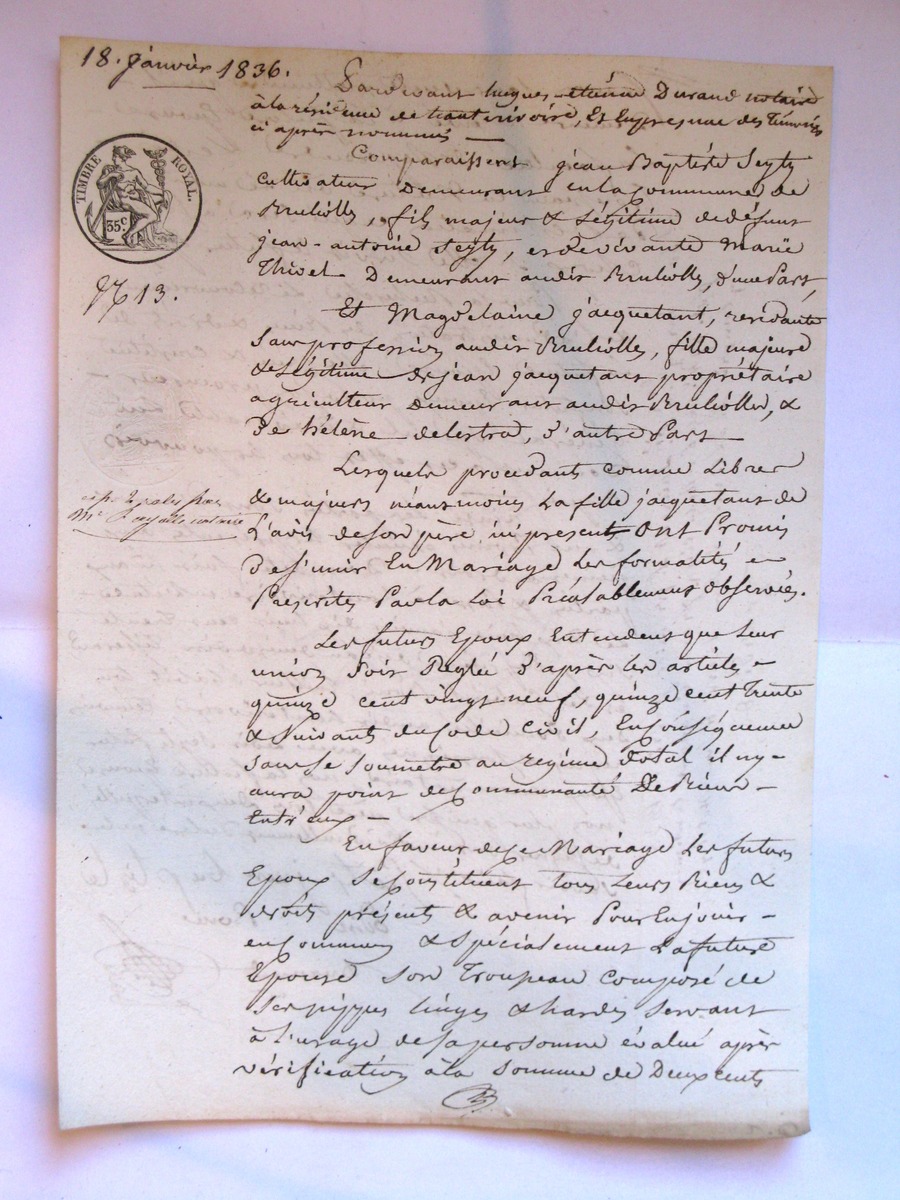 18. janvier 1836.
Pardevant hugues étiène Durand notaire
à la résidence de hautrivoire, Et En presence des Témoins
ci après nommés —
TIMBRE ROYAL.
35c
Comparaissent jean Baptiste Seyty
cultivateur Demeurant en la commune de
Brulliolles, fils majeur & Légitime de défunt
jean-antoine Seyty, et de vivante Marie
Thivel Demeurant audit Brulliolles, d'une Part,
No 13.
Et Magdelaine jacquetant, residante
Sans profession audit Brulliolles, fille majeure
& Légitime de jean jacquetant propriétaire
agriculteur Demeurant audit Brulliolles, &
De hélène delestra, d'autre Part —
Lesquels procédants comme Libres
& majeurs néanmoins La fille jacquetant de
L'avis de son père, ici present Ont Promis
De s'unir En Mariage Les formalités —
Prescrites Par la Loi Préalablement Observées.
Les futurs Epoux Entendent que Leur
union Soit Reglée d'après les articles —
quinze cent vingt neuf, quinze cent Trente
& Suivants du Code Civil, En Conséquence
sans se soumetre au regime dotal il n'y —
aura point de Communauté De Biens —
Entr'eux —
En faveur de ce Mariage Les futurs
Epoux Se Constituent tous Leurs Biens &
droits présents & avenir Pour En jouir —
en commun & Spécialement La future
Epouse son Trousseau Composé de
Ses nippes linges & hardes Servant
à l'usage de sa personne évalué après
vérification à la Somme de Deux cents